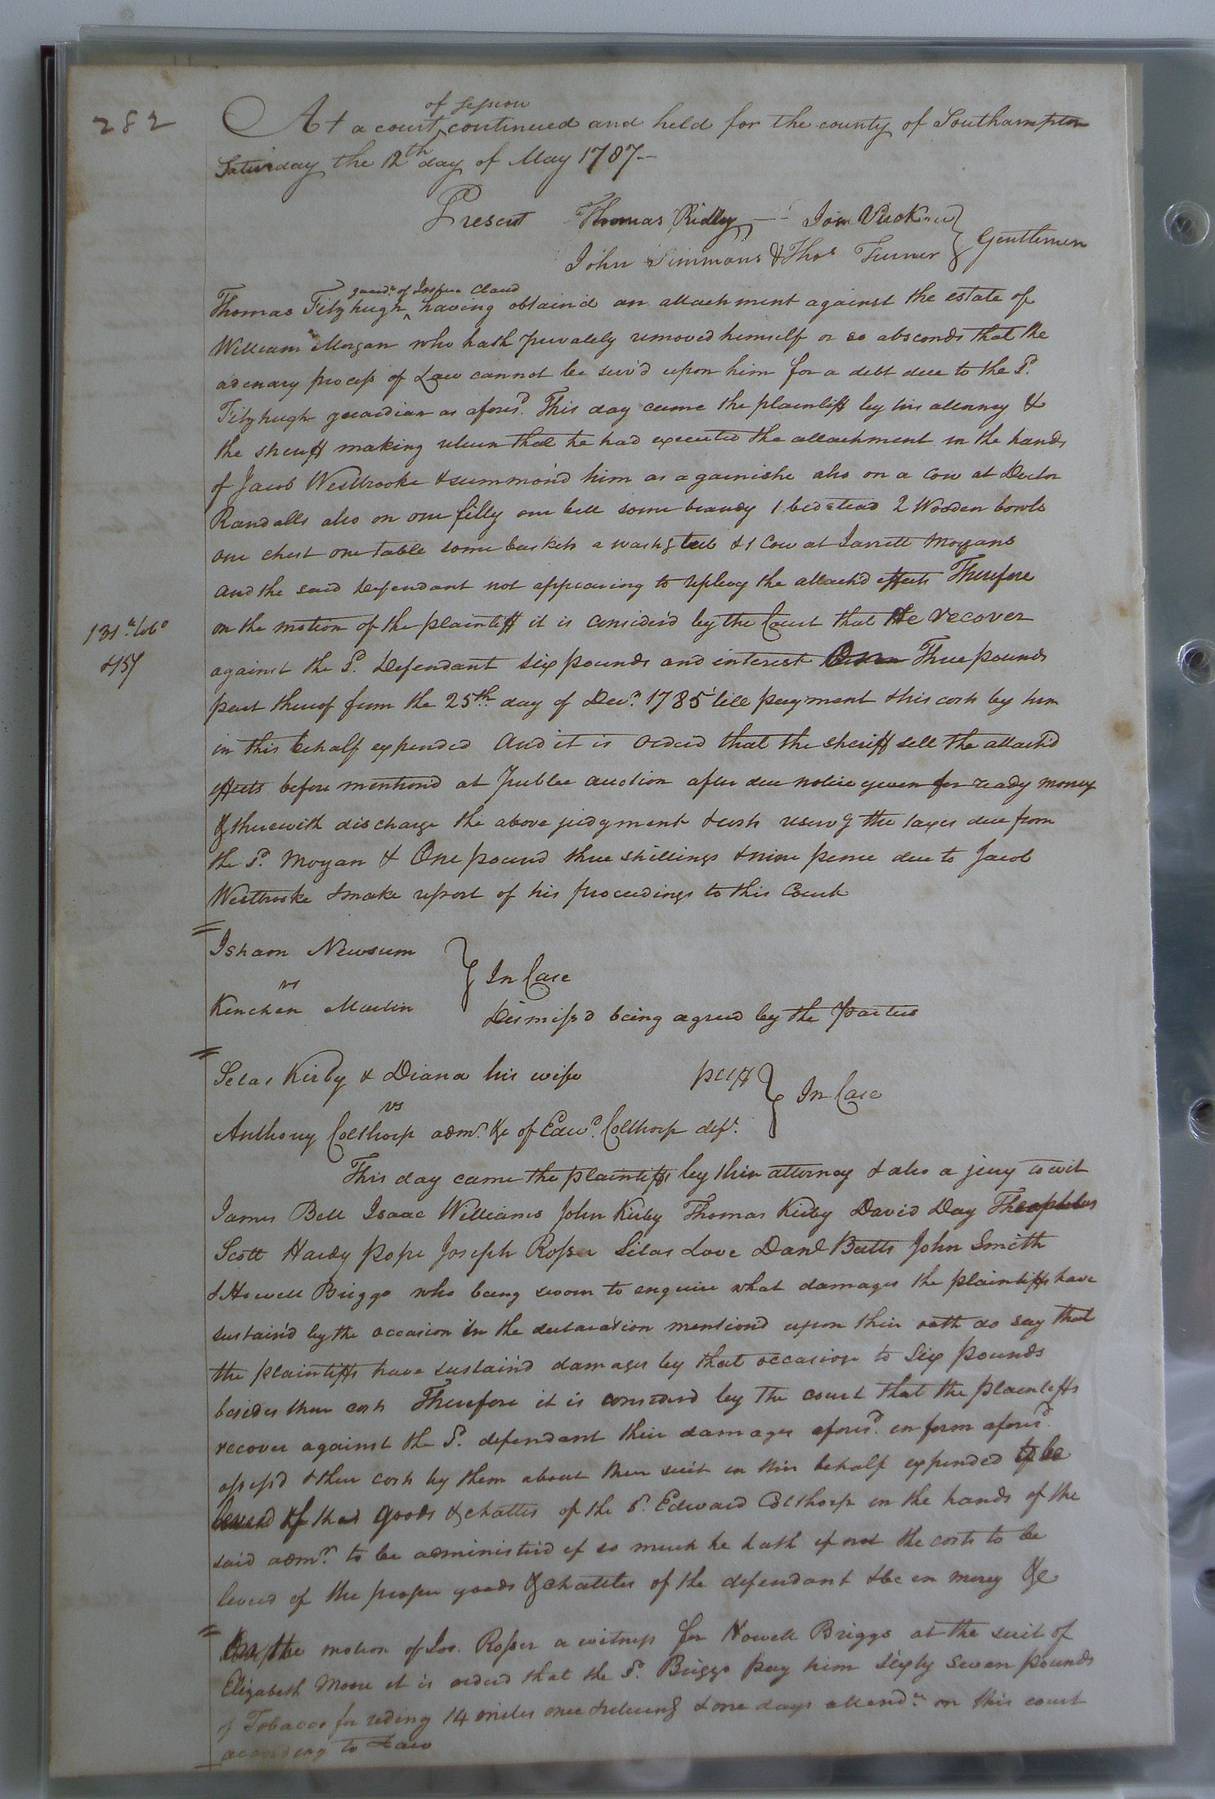 282
of Session
At a court continued and held for the county of Southampton
Saturday the 12th day of May 1787-
Present Thomas Ridley - Jos: Vick Gentlemen
John Simmons & Thos Turner
guardn of Joshua Claud
Thomas Fitzhugh having obtain'd an attachment against the estate of
William Morgan who hath privately removed himself or so absconds that the
ordenary process of Law cannot be serv'd upon him for a debt due to the sd.
Fitzhugh guardian as aforesd. This day came the plaintiff by his attorney &
the sheriff making return that he had executed the attachment in the hands
of Jacob Westbrooke & summon'd him as a garnishe also on a cow at Doctor
Randalls also on one filly one bell some brandy 1 bedstead 2 Wooden bowls
one chest one table some baskets a washg tub & 1 Cow at Jarrett Morgans
and the said Defendant not appearing to replevy the attach'd effects Therefore
on the motion of the plaintiff it is consider'd by the Court that He recover
131 lb tobo
& 15/
against the sd. Defendant Six pounds and interest Three pounds
part thereof from the 25th day of Decr. 1785 till payment & his costs by him
in this behalf expended And it is orderd that the sheriff sell the attach'd
effects before mention'd at Publec auction after due notice given for ready money
& therewith discharge the above judgment & costs reservg the taxes due from
the sd. Morgan & One pound three shillings & nine pence due to Jacob
Westbrooke & make report of his proceedings to this Court
Isham Newsum
vs In Case
Kinchen Martin
Dismiss'd being agreed by the Parties
Selas Kirby & Diana his wife pltff
vs In Case
Anthony Colthorp admr. &c of Edwd. Colthorp deft.
This day came the plaintiffs by their attorney & also a jury to wit
James Bell Isaac Williams John Kirby Thomas Kirby David Day Theophilus
Scott Hardy Pope Joseph Rosser Silas Love Danl Butts John Smith
& Howell Briggs who being sworn to enquire what damages the plaintiffs have
sustain'd by the occasion in the declaration mention'd upon their oath do say that
the plaintiffs have sustain'd damages by that occasion to Six pounds
besides their costs Therefore it is considerd by the court that the plaintiffs
recover against the sd. defendant their damages aforesd. in form aforesd.
assess'd & their costs by them about their suit in this behalf expended to be
levied of the goods & chattels of the sd. Edward Colthorp in the hands of the
said admr. to be administred if so much he hath if not the costs to be
levied of the proper goods & chatteles of the defendant & be in mercy &c
On the motion of Jos. Rosser a witness for Howell Briggs at the suit of
Elizabeth Moore it is orderd that the sd. Briggs pay him Sixty Seven pounds
of Tobacco for riding 14 miles once & returng & one days attende. on this court
according to Law